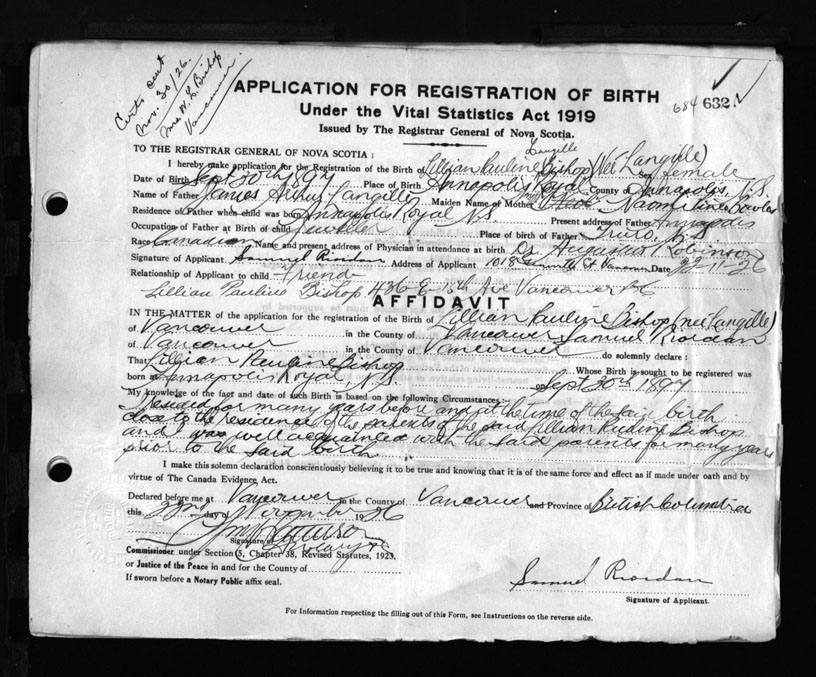 Certs sent
Nov. 30/26.
Mrs W. L. Bishop
Vancouver
APPLICATION FOR REGISTRATION OF BIRTH
Under the Vital Statistics Act 1919
684 632
Issued by The Registrar General of Nova Scotia.
TO THE REGISTRAR GENERAL OF NOVA SCOTIA:
Langille
I hereby make application for the Registration of the Birth of Lillian Pauline Bishop (Neé Langille)
Date of Birth Sept 30th 1897 Place of Birth Annapolis Royal County of Annapolis, N.S. female
Name of Father James Arthur Langille Maiden Name of Mother Naomi Bowles
Residence of Father when child was born Annapolis Royal N.S. Present address of Father Annapolis
Occupation of Father at Birth of child Jeweller Place of birth of Father Truro, N.S.
Race Canadian Name and present address of Physician in attendance at birth Dr. Augustus Robinson
Signature of Applicant Samuel Riordan Address of Applicant 1018 St Vancouver Date 22-11-26
Relationship of Applicant to child friend
Lillian Pauline Bishop 436 E 15th Ave Vancouver BC
AFFIDAVIT
IN THE MATTER of the application for the registration of the Birth of Lillian Pauline Bishop (neé Langille)
of Vancouver in the County of Vancouver Samuel Riordan
of Vancouver in the County of Vancouver do solemnly declare:
That Lillian Pauline Bishop Whose Birth is sought to be registered was
born at Annapolis Royal, N.S. on Sept 30th 1897
My knowledge of the fact and date of such Birth is based on the following Circumstances:
I resided for many years before and at the time of the said birth
close to the residence of the parents of the said Lillian Pauline Bishop
and was well acquainted with the said parents for many years
prior to the said birth
I make this solemn declaration conscientiously believing it to be true and knowing that it is of the same force and effect as if made under oath and by
virtue of The Canada Evidence Act.
Declared before me at Vancouver in the County of Vancouver and Province of British Columbia
this 22nd day of November 1926
Signature of
Notary
Commissioner under Section (3, Chapter 38, Revised Statutes, 1923,
or Justice of the Peace in and for the County of
If sworn before a Notary Public affix seal.
Samuel Riordan
Signature of Applicant.
For Information respecting the filling out of this Form, see Instructions on the reverse side.